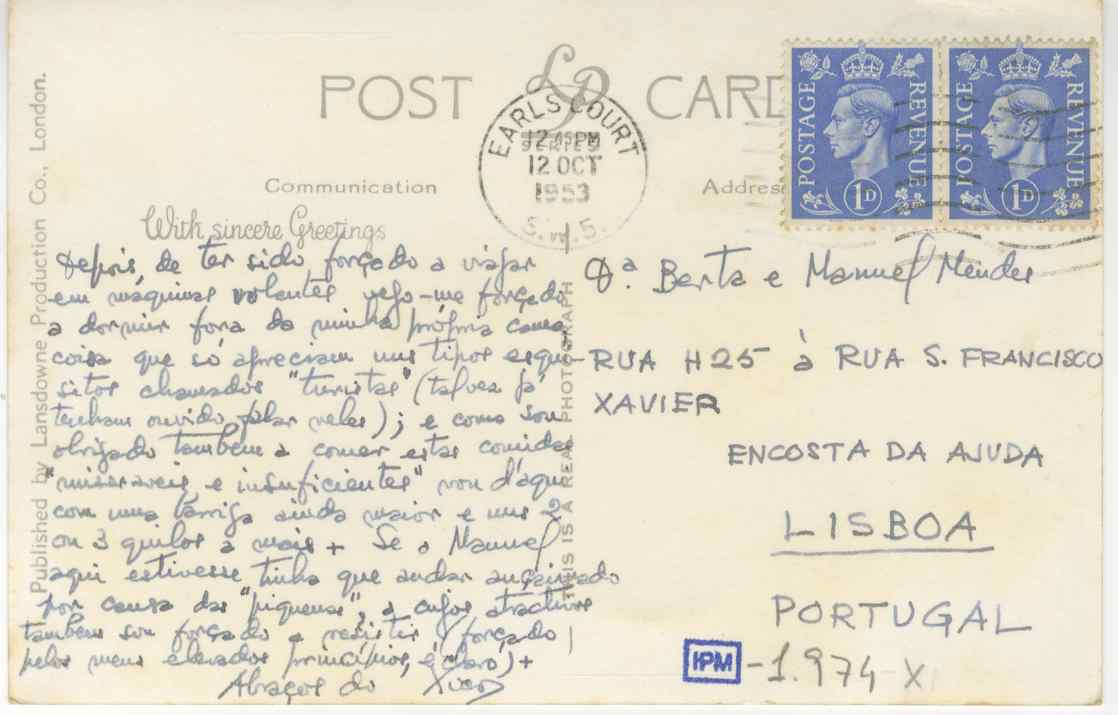 POST CARD
LP
SERIES
Communication
Address
With sincere Greetings
Published by Lansdowne Production Co., London.
THIS IS A REAL PHOTOGRAPH
EARLS COURT
12 45 PM
12 OCT
1953
S.W.5.
POSTAGE REVENUE
1D
POSTAGE REVENUE
1D
depois de ter sido forçado a viajar
em máquinas volantes vejo-me forçado
a dormir fora da minha própria cama
coisa que só apreciam uns tipos esqui-
sitos chamados "turistas" (talvez já
tenham ouvido falar neles); e como sou
obrigado tambem a comer estas comidas
"miseraveis e insuficientes" vou d'aqui
com uma barriga ainda maior e uns 2
ou 3 quilos a mais + Se o Manuel
aqui estivesse tinha que andar açaimado
por causa das "piquenas", a cujos atractivos
tambem sou forçado a resistir (forçado
pelos meus elevados princípios, é claro) +
Abraços do Xico
Dª. Berta e Manuel Mendes
RUA H25 à RUA S. FRANCISCO
XAVIER
ENCOSTA DA AJUDA
LISBOA
PORTUGAL
IPM -1.974-X